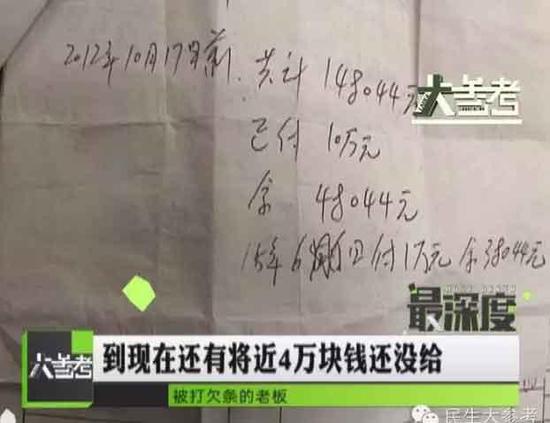 2012年10月17日前.共计148044元
大参考
已付 10万元
余 48044元
15年6月 日付1万元余38044元
最深度
大参考
到现在还有将近4万块钱还没给
被打欠条的老板
民生大参考